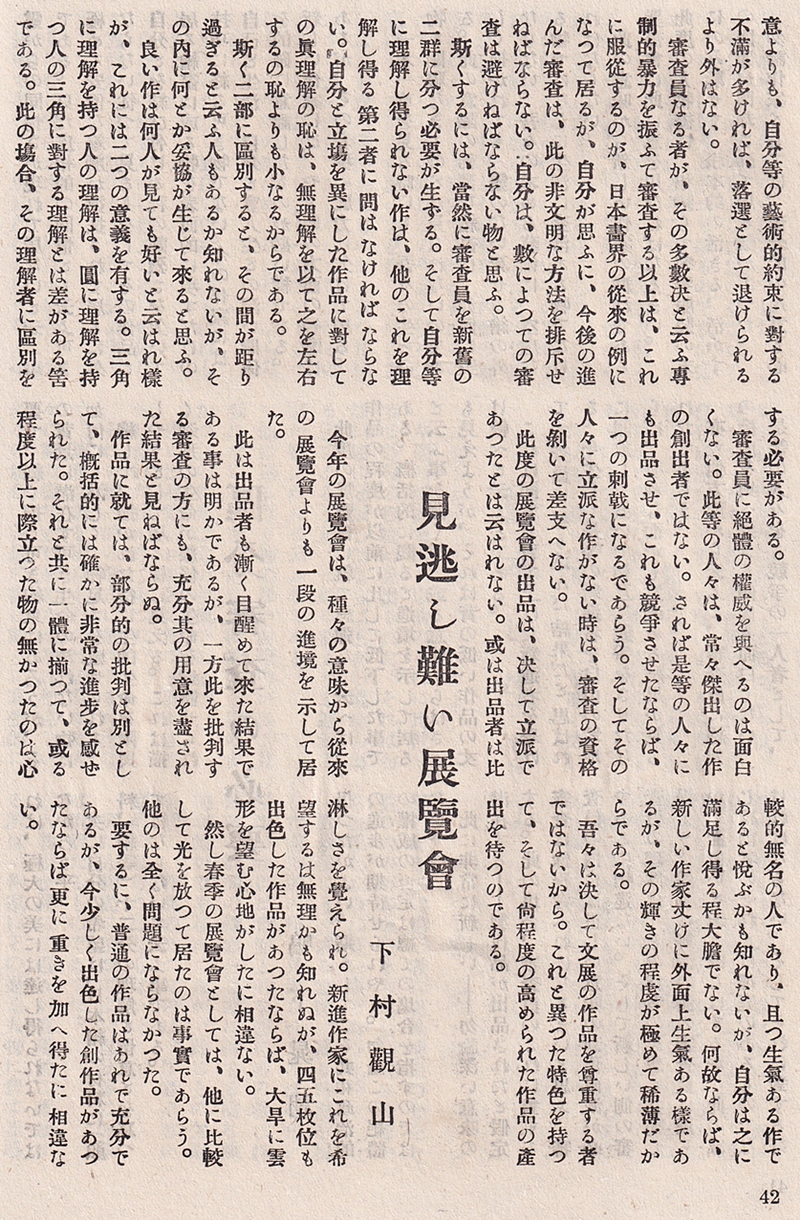 意よりも、自分等の藝術的約束に對する
不滿が多ければ、落選として退けられる
より外はない。
審査員なる者が、その多數決と云ふ專
制的暴力を振ふて審査する以上は、これ
に服從するのが、日本畵界の從來の例に
なつて居るが、自分が思ふに、今後の進
んだ審査は、此の非文明な方法を排斥せ
ねばならない。自分は、數によつての審
査は避けねばならない物と思ふ。
斯くするには、當然に審査員を新舊の
二群に分つ必要が生ずる。そして自分等
に理解し得られない作は、他のこれを理
解し得る第二者に問はなければならな
い。自分と立塲を異にした作品に對して
の眞理解の恥は、無理解を以て之を左右
するの恥よりも小なるからである。
斯く二部に區別すると、その間が距り
過ぎると云ふ人もあるか知れないが、そ
の內に何とか妥協が生じて來ると思ふ。
良い作は何人が見ても好いと云はれ樣
が、これには二つの意義を有する。三角
に理解を持つ人の理解は、圓に理解を持
つ人の三角に對する理解とは差がある筈
である。此の塲合、その理解者に區別を
する必要がある。
審査員に絕體の權威を與へるのは面白
くない。此等の人々は、常々傑出した作
の創出者ではない。されば是等の人々に
も出品させ、これも競爭させたならば、
一つの刺戟になるであらう。そしてその
人々に立派な作がない時は、審査の資格
を剝いて差支へない。
此度の展覽會の出品は、决して立派で
あつたとは云はれない。或は出品者は比
較的無名の人であり、且つ生氣ある作で
あると悅ぶかも知れないが、自分は之に
滿足し得る程大膽でない。何故ならば、
新しい作家丈けに外面上生氣ある樣であ
るが、その輝きの程度が極めて稀薄だか
らである。
吾々は決して文展の作品を尊重する者
ではないから。これと異つた特色を持つ
て、そして尙程度の高められた作品の產
出を待つのである。
見逃し難い展覽會
下村觀山
今年の展覽會は、種々の意味から從來
の展覽會よりも一段の進境を示して居
た。
此は出品者も漸く目醒めて來た結果で
ある事は明かであるが、一方此を批判す
る審査の方にも、充分其の用意を盡され
た結果と見ねばならぬ。
作品に就ては、部分的の批判は別とし
て、槪括的には確かに非常な進步を感せ
られた。それと共に一體に揃つて、或る
程度以上に際立つた物の無かつたのは心
淋しさを覺えられ。新進作家にこれを希
望するは無理かも知れぬが、四五枚位も
出色した作品があつたならば、大旱に雲
形を望む心地がしたに相違ない。
然し春季の展覽會としては、他に比較
して光を放つて居たのは事實であらう。
他のは全く問題にならなかつた。
要するに、普通の作品はあれで充分で
あるが、今少しく出色した創作品があつ
たならば更に重きを加へ得たに相違な
い。
42